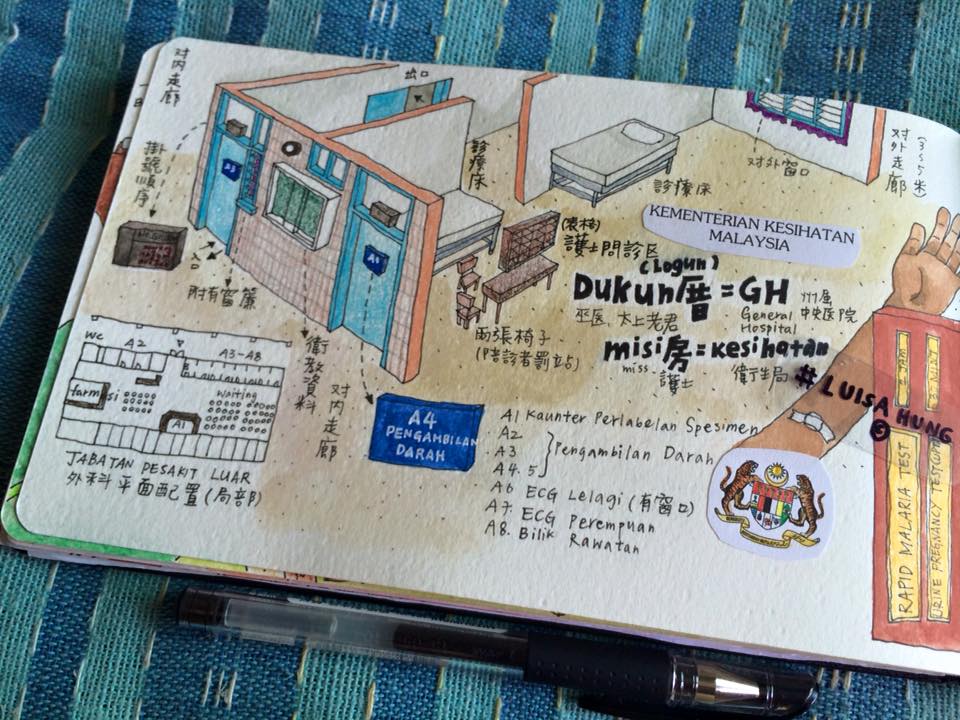 对内走廊
出口
掛號順序
A3
診療床
診療床
对外窗口
对外走廊
(3~5米)
KEMENTERIAN KESIHATAN
MALAYSIA
護士問診区
(Logun)
Dukun厝=GH
巫医, 太上老君
General
Hospital
州属
中央医院
misi房=Kesihatan
miss
護士
衛生局
#LUISA HUNG
入口
附有窗簾
兩張椅子
(陪診者罰站)
衛教資料
对内走廊
WC
A2
A3-A8
farmasi
waiting
A1
JABATAN PESAKIT LUAR
外科平面配置(局部)
A4
PENGAMBILAN
DARAH
A1 Kaunter Perlabelan Spesimen
A2
A3
A4.5
Pengambilan Darah
A6 ECG Lelagi (有窗口)
A7. ECG Perempuan
A8. Bilik Rawatan
RAPID MALARIA TEST
URINE PREGNANCY TEST